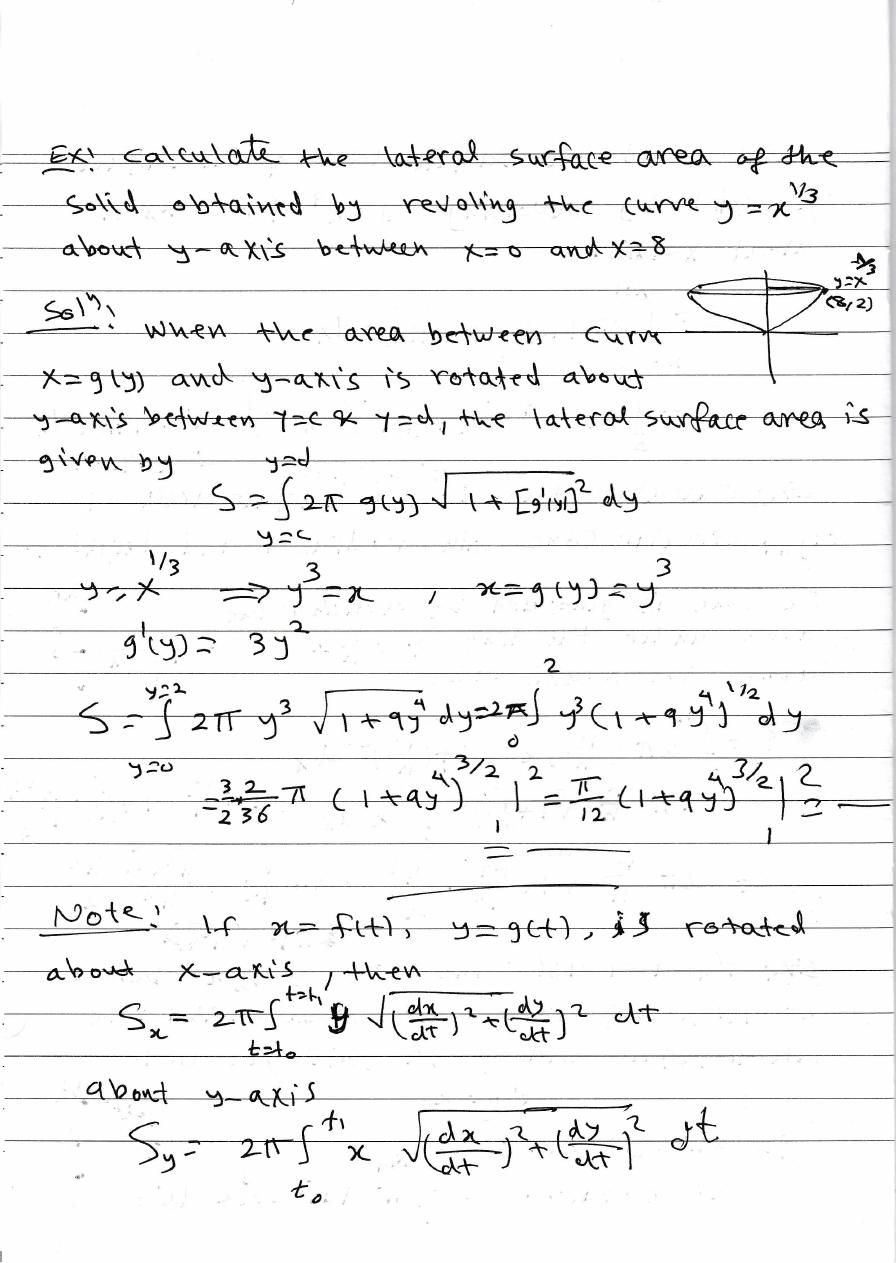 Ex! Calculate the lateral surface area of the
solid obtained by revoling the curve y = x^{1/3}
about y-axis between x=0 and x=8
y=x^{1/3}
(8,2)
Solⁿ: When the area between curve
x=g(y) and y-axis is rotated about
y-axis between y=c & y=d, the lateral surface area is
given by
S = ∫_{y=c}^{y=d} 2π g(y) √(1+[g'(y)]²) dy
y = x^{1/3} ⟹ y³ = x , x = g(y) = y³
g'(y) = 3y²
S = ∫_{y=0}^{y=2} 2π y³ √(1+9y⁴) dy = 2π ∫_0^2 y³ (1+9y⁴)^{1/2} dy
= 3/2 · 2/36 π (1+9y⁴)^{3/2} |_1^2 = π/12 (1+9y⁴)^{3/2} |_1^2 = —
= —
Note! If x = f(t), y = g(t), is rotated
about x-axis, then
S_x = 2π ∫_{t=t₀}^{t=t₁} y √((dx/dt)² + (dy/dt)²) dt
about y-axis
S_y = 2π ∫_{t₀}^{t₁} x √((dx/dt)² + (dy/dt)²) dt